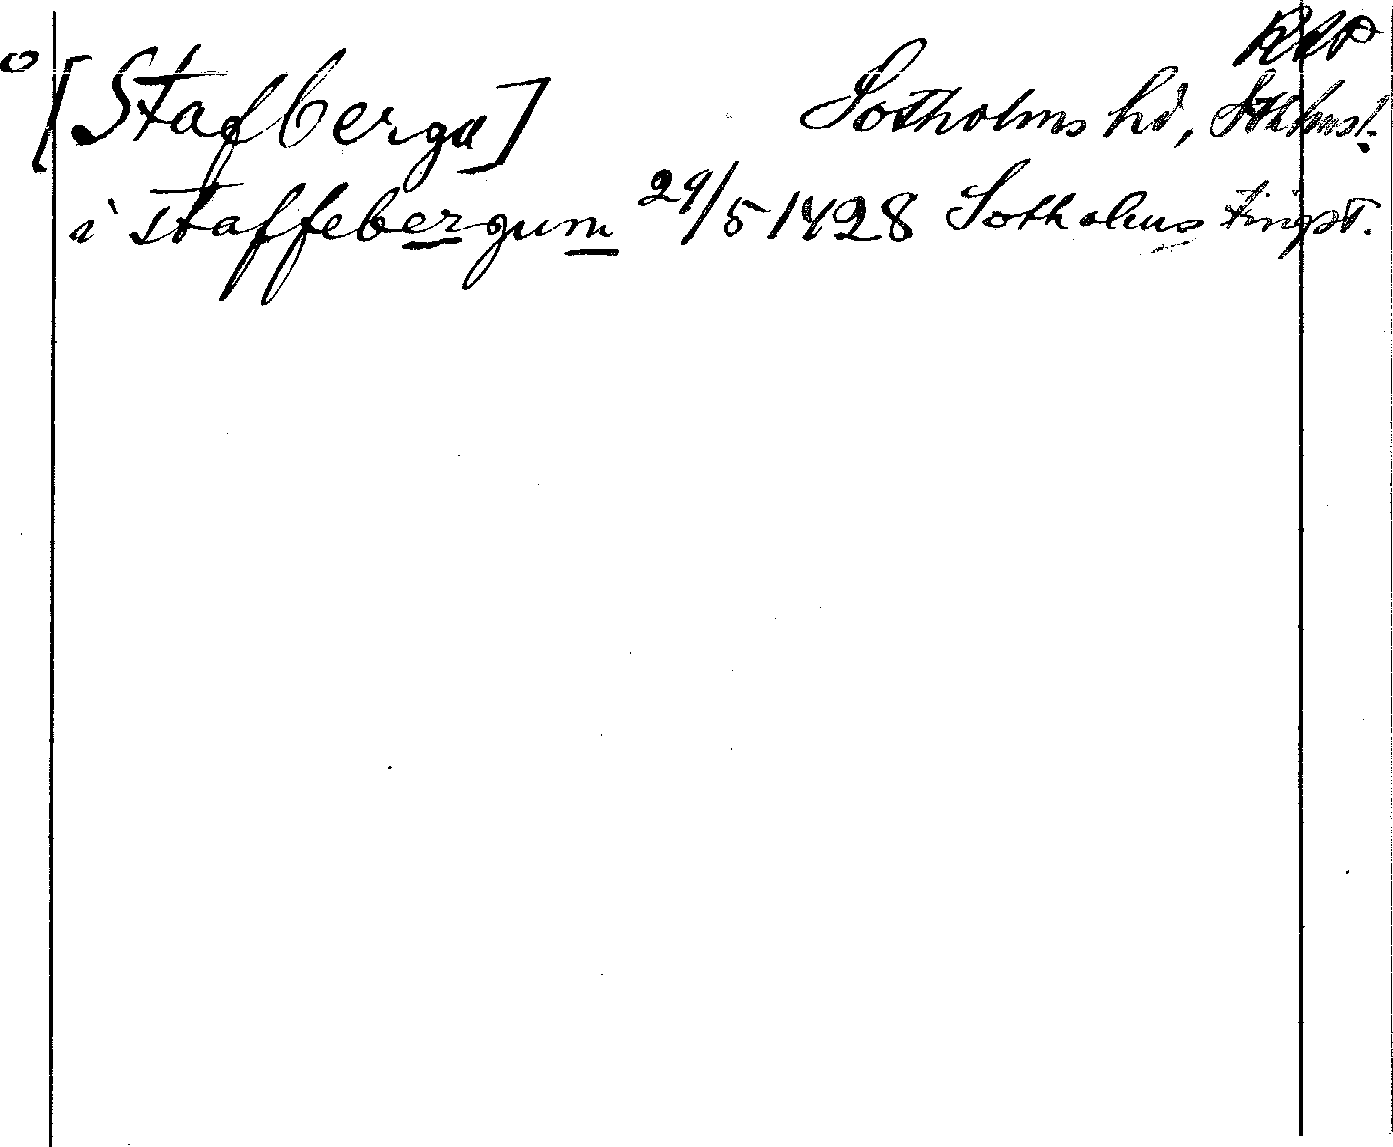 o [Stafberga] Sotholms hd, Sthms l.
i staffebergum 29/5 1428 Sotholms tingst.